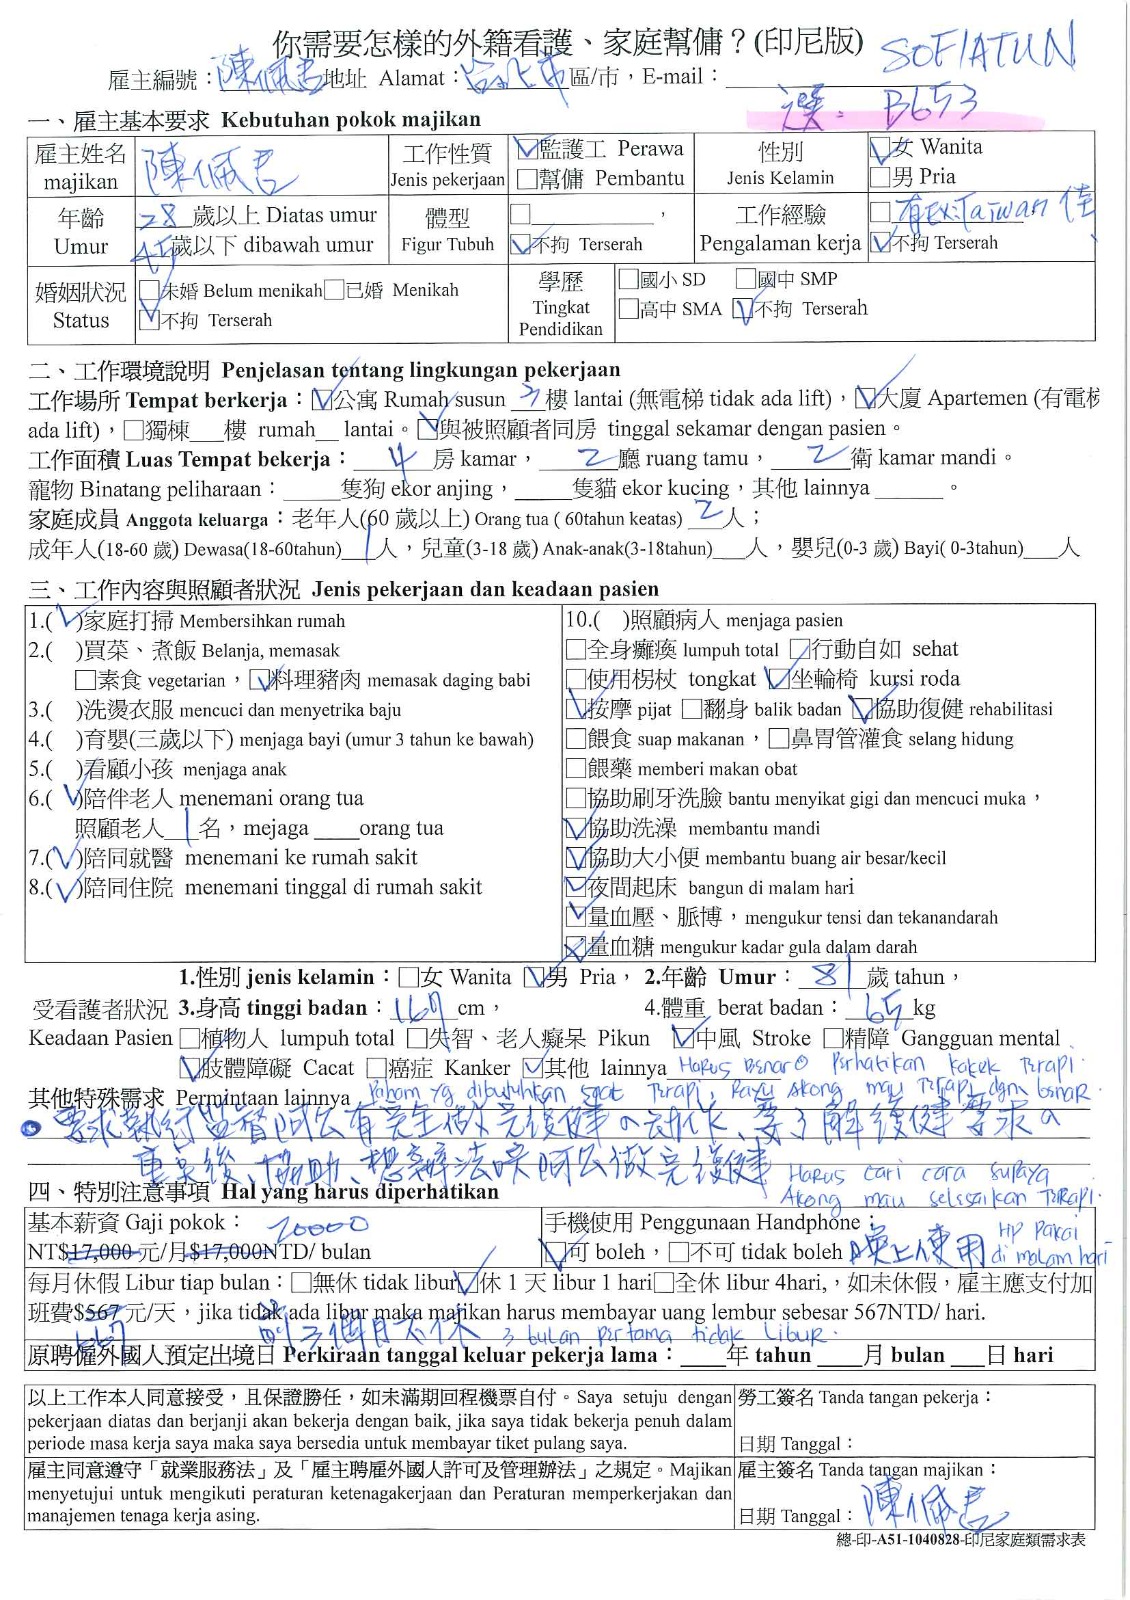 你需要怎樣的外籍看護、家庭幫傭？(印尼版) SOFIATUN
雇主編號：陳佩吉 地址 Alamat：台北市 區/市，E-mail：
選：B653
一、雇主基本要求 Kebutuhan pokok majikan
雇主姓名 majikan 陳佩吉 工作性質 Jenis pekerjaan ☑監護工 Perawa □幫傭 Pembantu 性別 Jenis Kelamin ☑女 Wanita □男 Pria
年齡 Umur 28 歲以上 Diatas umur 45 歲以下 dibawah umur 體型 Figur Tubuh □ , ☑不拘 Terserah 工作經驗 Pengalaman kerja □有ex:Taiwan 佳 ☑不拘 Terserah
婚姻狀況 Status □未婚 Belum menikah □已婚 Menikah ☑不拘 Terserah 學歷 Tingkat Pendidikan □國小 SD □國中 SMP □高中 SMA ☑不拘 Terserah
二、工作環境說明 Penjelasan tentang lingkungan pekerjaan
工作場所 Tempat berkerja：☑公寓 Rumah susun 3 樓 lantai (無電梯 tidak ada lift)，☑大廈 Apartemen (有電梯
ada lift)，□獨棟___樓 rumah__ lantai。☑與被照顧者同房 tinggal sekamar dengan pasien。
工作面積 Luas Tempat bekerja： 4 房 kamar， 2 廳 ruang tamu， 2 衛 kamar mandi。
寵物 Binatang peliharaan：_____隻狗 ekor anjing，_____隻貓 ekor kucing，其他 lainnya ______。
家庭成員 Anggota keluarga：老年人(60 歲以上) Orang tua ( 60tahun keatas) 2 人；
成年人(18-60 歲) Dewasa(18-60tahun) 1 人，兒童(3-18 歲) Anak-anak(3-18tahun)___人，嬰兒(0-3 歲) Bayi( 0-3tahun)___人
三、工作內容與照顧者狀況 Jenis pekerjaan dan keadaan pasien
1.(✓)家庭打掃 Membersihkan rumah
2.( )買菜、煮飯 Belanja, memasak
□素食 vegetarian，☑料理豬肉 memasak daging babi
3.( )洗燙衣服 mencuci dan menyetrika baju
4.( )育嬰(三歲以下) menjaga bayi (umur 3 tahun ke bawah)
5.( )看顧小孩 menjaga anak
6.(✓)陪伴老人 menemani orang tua
照顧老人 1 名，mejaga ____orang tua
7.(✓)陪同就醫 menemani ke rumah sakit
8.(✓)陪同住院 menemani tinggal di rumah sakit
10.( )照顧病人 menjaga pasien
□全身癱瘓 lumpuh total □行動自如 sehat
□使用柺杖 tongkat ☑坐輪椅 kursi roda
☑按摩 pijat □翻身 balik badan ☑協助復健 rehabilitasi
□餵食 suap makanan，□鼻胃管灌食 selang hidung
□餵藥 memberi makan obat
□協助刷牙洗臉 bantu menyikat gigi dan mencuci muka，
☑協助洗澡 membantu mandi
☑協助大小便 membantu buang air besar/kecil
☑夜間起床 bangun di malam hari
☑量血壓、脈博，mengukur tensi dan tekanandarah
☑量血糖 mengukur kadar gula dalam darah
1.性別 jenis kelamin：□女 Wanita ☑男 Pria， 2.年齡 Umur： 81 歲 tahun，
受看護者狀況 3.身高 tinggi badan：167 cm， 4.體重 berat badan：65 kg
Keadaan Pasien □植物人 lumpuh total □失智、老人癡呆 Pikun ☑中風 Stroke □精障 Gangguan mental
☑肢體障礙 Cacat □癌症 Kanker ☑其他 lainnya Harus Benar2 Perhatikan kakek Terapi.
其他特殊需求 Permintaan lainnya Paham yg dibutuhkan saat Terapi, Rayu Akong mau Terapi dgn benar.
要求執行監督阿公有完全做完復健的動作、要了解復健要求的
重點後、協助、想辦法哄阿公做完復健 Harus cari cara supaya
Akong mau selesaikan Terapi.
四、特別注意事項 Hal yang harus diperhatikan
基本薪資 Gaji pokok： 20000
NT$17,000 元/月$17,000NTD/ bulan
手機使用 Penggunaan Handphone：
☑可 boleh，□不可 tidak boleh 晚上使用 HP Pakai di malam hari
每月休假 Libur tiap bulan：□無休 tidak libur ☑休 1 天 libur 1 hari □全休 libur 4hari,，如未休假，雇主應支付加
班費$567元/天，jika tidak ada libur maka majikan harus membayar uang lembur sebesar 567NTD/ hari.
667 前三個月不休 3 bulan pertama tidak libur.
原聘僱外國人預定出境日 Perkiraan tanggal keluar pekerja lama：____年 tahun ____月 bulan ___日 hari
以上工作本人同意接受，且保證勝任，如未滿期回程機票自付。Saya setuju dengan
pekerjaan diatas dan berjanji akan bekerja dengan baik, jika saya tidak bekerja penuh dalam
periode masa kerja saya maka saya bersedia untuk membayar tiket pulang saya.
勞工簽名 Tanda tangan pekerja：
日期 Tanggal：
雇主同意遵守「就業服務法」及「雇主聘雇外國人許可及管理辦法」之規定。Majikan
menyetujui untuk mengikuti peraturan ketenagakerjaan dan Peraturan memperkerjakan dan
manajemen tenaga kerja asing.
雇主簽名 Tanda tangan majikan：
日期 Tanggal： 陳佩吉
總-印-A51-1040828-印尼家庭類需求表